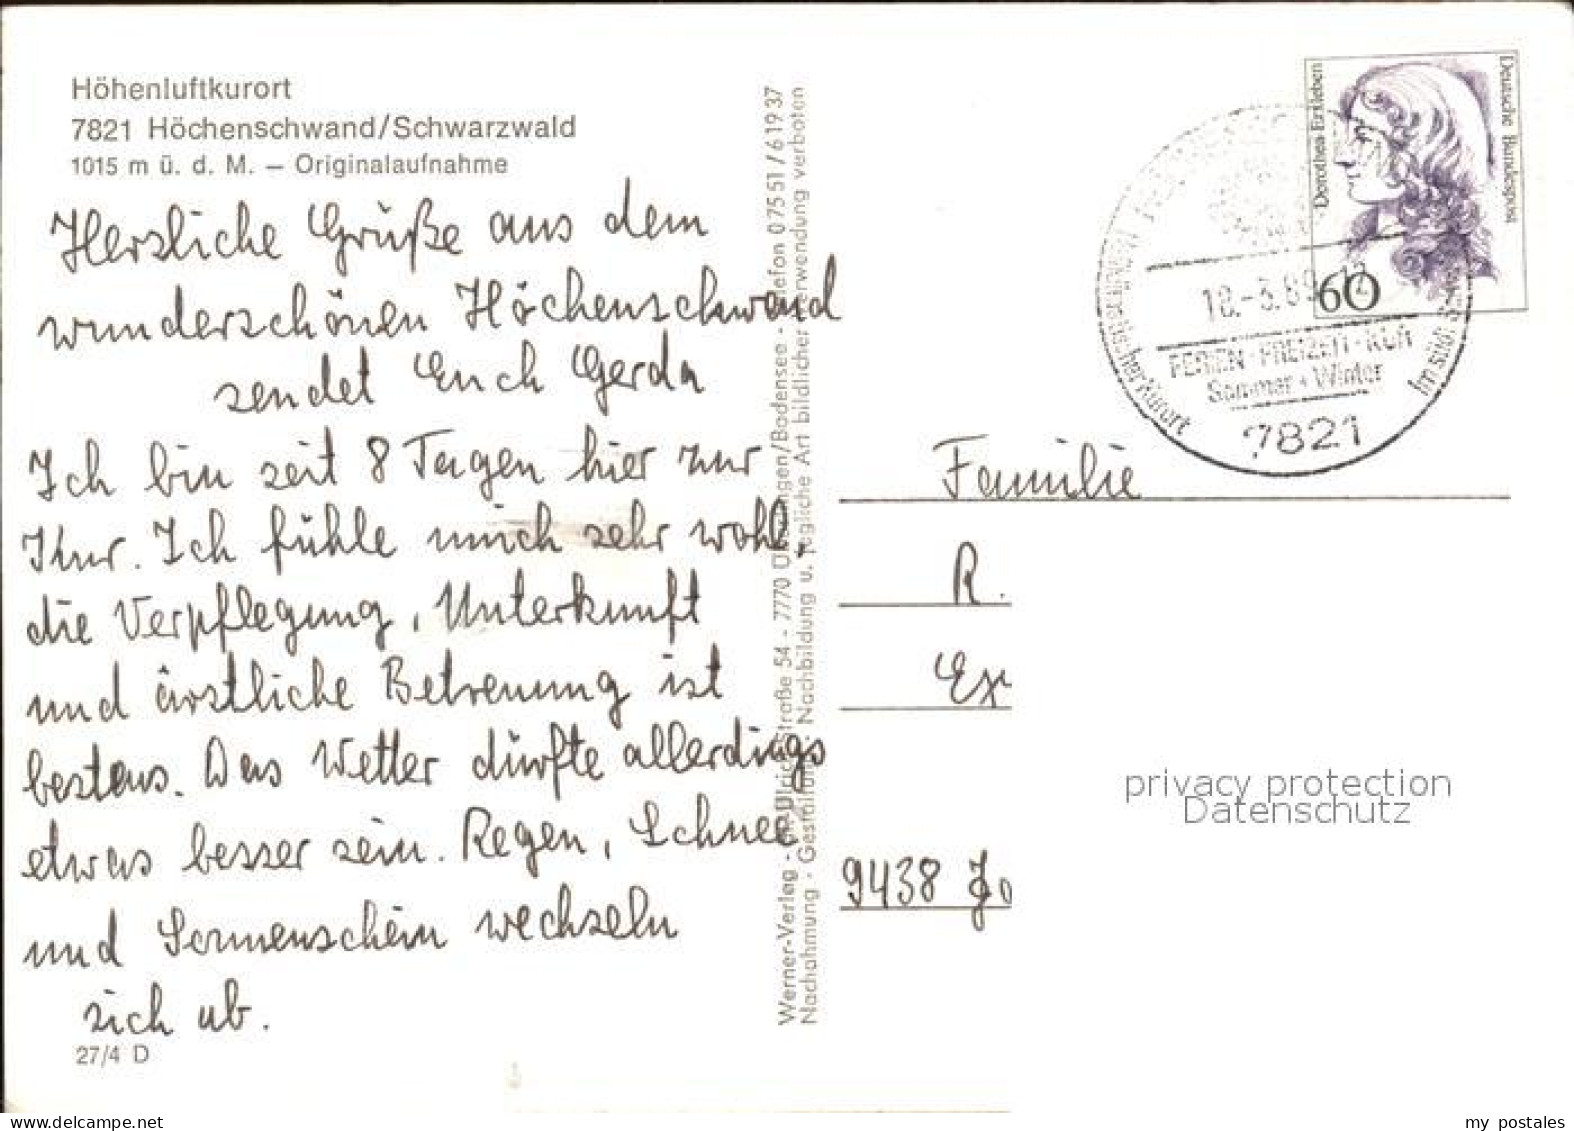 Höhenluftkurort
7821 Höchenschwand/Schwarzwald
1015 m ü. d. M. — Originalaufnahme
Herzliche Grüße aus dem
wunderschönen Höchenschwand
sendet Euch Gerda
Ich bin seit 8 Tagen hier zur
Kur. Ich fühle mich sehr wohl,
die Verpflegung, Unterkunft
und ärztliche Betreuung ist
bestens. Das Wetter dürfte allerdings
etwas besser sein. Regen, Schnee
und Sonnenschein wechseln
sich ab.
27/4 D
Werner-Verlag · St.-Ulrich-Straße 54 - 7770 Überlingen/Bodensee - Telefon 0 75 51 / 6 19 37
Nachahmung - Gestaltung - Nachbildung u. jegliche Art bildlicher Verwendung verboten
Dorothea Erxleben
Deutsche Bundespost
60
18.-3.89-12
FERIEN - FREIZEIT - KUR
Sommer + Winter
7821
Familie
R.
Ex
9438 Jo
privacy protection
Datenschutz
www.delcampe.net
my_postales